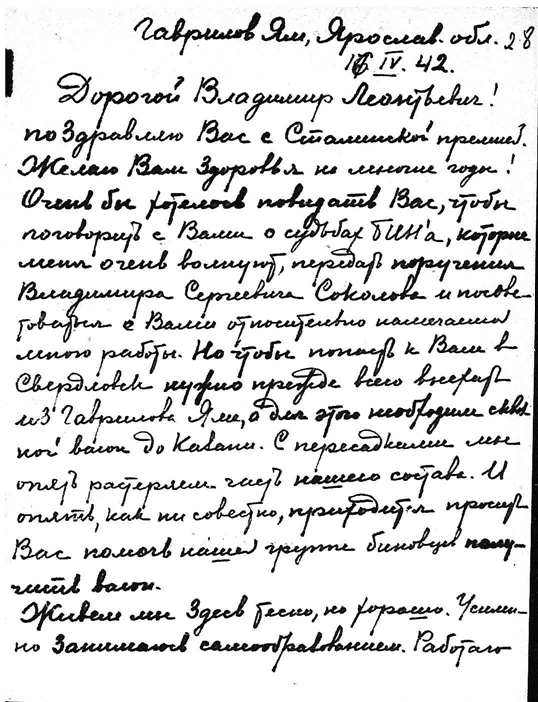 Гаврилов Ям, Ярослав. обл. 28
16 IV. 42.
Дорогой Владимир Леонтьевич!
поздравляю Вас с Сталинской премией.
Желаю Вам здоровья на многие годы!
Очень бы хотелось повидать Вас, чтобы
поговорить с Вами о судьбах БИН'а, которые
меня очень волнуют, передать поручения
Владимира Сергеевича Соколова и посове-
товаться с Вами относительно намечаемой
мною работы. Но чтобы попасть к Вам в
Свердловск нужно прежде всего выехать
из Гаврилова Яма, а для этого необходим сквоз-
ной вагон до Казани. С пересадками мы
опять растеряем часть нашего состава. И
опять, как ни совестно, приходится просить
Вас помочь нашей группе биновцев полу-
чить вагон.
Живем мы здесь тесно, но хорошо. Усилен-
но занимаюсь самообразованием. Работаю